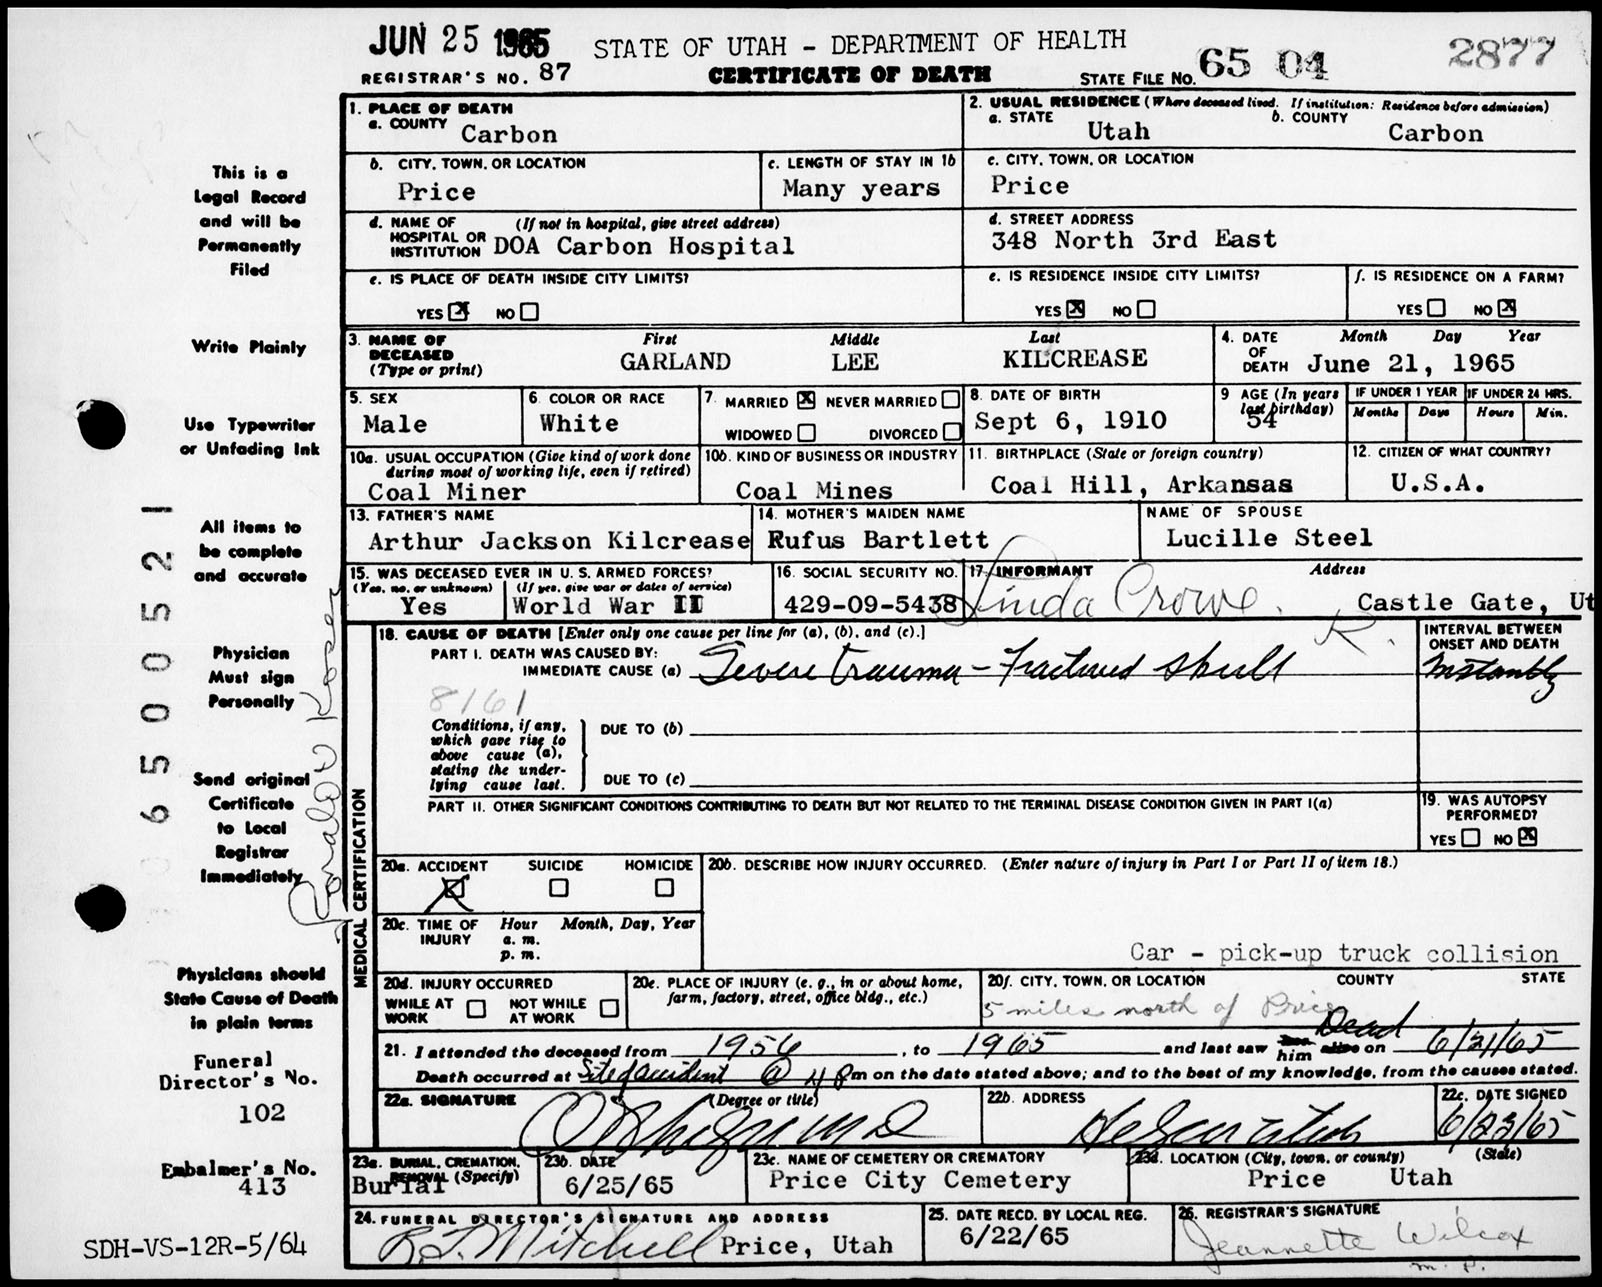 JUN 25 1965 STATE OF UTAH - DEPARTMENT OF HEALTH 2877
REGISTRAR'S NO. 87 CERTIFICATE OF DEATH STATE FILE NO. 65 04
1. PLACE OF DEATH
a. COUNTY Carbon
2. USUAL RESIDENCE (Where deceased lived. If institution: Residence before admission)
a. STATE Utah b. COUNTY Carbon
b. CITY, TOWN, OR LOCATION
Price
c. LENGTH OF STAY IN 1b
Many years
c. CITY, TOWN, OR LOCATION
Price
d. NAME OF HOSPITAL OR INSTITUTION (If not in hospital, give street address)
DOA Carbon Hospital
d. STREET ADDRESS
348 North 3rd East
e. IS PLACE OF DEATH INSIDE CITY LIMITS?
YES X NO
e. IS RESIDENCE INSIDE CITY LIMITS?
YES X NO
f. IS RESIDENCE ON A FARM?
YES NO X
3. NAME OF DECEASED (Type or print)
First Middle Last
GARLAND LEE KILCREASE
4. DATE OF DEATH Month Day Year
June 21, 1965
5. SEX
Male
6. COLOR OR RACE
White
7. MARRIED X NEVER MARRIED
WIDOWED DIVORCED
8. DATE OF BIRTH
Sept 6, 1910
9 AGE (In years last birthday)
54
IF UNDER 1 YEAR IF UNDER 24 HRS.
Months Days Hours Min.
10a. USUAL OCCUPATION (Give kind of work done during most of working life, even if retired)
Coal Miner
10b. KIND OF BUSINESS OR INDUSTRY
Coal Mines
11. BIRTHPLACE (State or foreign country)
Coal Hill, Arkansas
12. CITIZEN OF WHAT COUNTRY?
U.S.A.
13. FATHER'S NAME
Arthur Jackson Kilcrease
14. MOTHER'S MAIDEN NAME
Rufus Bartlett
NAME OF SPOUSE
Lucille Steel
15. WAS DECEASED EVER IN U. S. ARMED FORCES?
(Yes, no, or unknown) (If yes, give war or dates of service)
Yes World War II
16. SOCIAL SECURITY NO.
429-09-5438
17 INFORMANT Address
Linda Crowe. Castle Gate, Ut
R.
MEDICAL CERTIFICATION
18. CAUSE OF DEATH [Enter only one cause per line for (a), (b), and (c).]
PART I. DEATH WAS CAUSED BY:
IMMEDIATE CAUSE (a) Severe trauma - Fractured skull
INTERVAL BETWEEN ONSET AND DEATH
Instantly
8161
Conditions, if any, which gave rise to above cause (a), stating the underlying cause last.
DUE TO (b)
DUE TO (c)
PART II. OTHER SIGNIFICANT CONDITIONS CONTRIBUTING TO DEATH BUT NOT RELATED TO THE TERMINAL DISEASE CONDITION GIVEN IN PART I(a)
19. WAS AUTOPSY PERFORMED?
YES NO X
20a. ACCIDENT SUICIDE HOMICIDE
X
20b. DESCRIBE HOW INJURY OCCURRED. (Enter nature of injury in Part I or Part II of item 18.)
Car - pick-up truck collision
20c. TIME OF INJURY Hour Month, Day, Year
a. m.
p. m.
20d. INJURY OCCURRED
WHILE AT WORK NOT WHILE AT WORK
20e. PLACE OF INJURY (e. g., in or about home, farm, factory, street, office bldg., etc.)
20f. CITY, TOWN, OR LOCATION COUNTY STATE
5 miles north of Price
21. I attended the deceased from 1956, to 1965 and last saw him Dead on 6/21/65
Death occurred at Site of accident @ 4 Pm on the date stated above; and to the best of my knowledge, from the causes stated.
22a. SIGNATURE (Degree or title)
22b. ADDRESS
22c. DATE SIGNED
6/23/65
23a. BURIAL, CREMATION, REMOVAL (Specify)
Burial
23b. DATE
6/25/65
23c. NAME OF CEMETERY OR CREMATORY
Price City Cemetery
23d. LOCATION (City, town, or county) (State)
Price Utah
24. FUNERAL DIRECTOR'S SIGNATURE AND ADDRESS
R. L. Mitchell Price, Utah
25. DATE RECD. BY LOCAL REG.
6/22/65
26. REGISTRAR'S SIGNATURE
Jeannette Wilcox
m. p.
This is a
Legal Record
and will be
Permanently
Filed
Write Plainly
Use Typewriter
or Unfading Ink
All items to
be complete
and accurate
Physician
Must sign
Personally
Send original
Certificate
to Local
Registrar
Immediately
Physicians should
State Cause of Death
in plain terms
Funeral
Director's No.
102
Embalmer's No.
413
SDH-VS-12R-5/64
65 00521